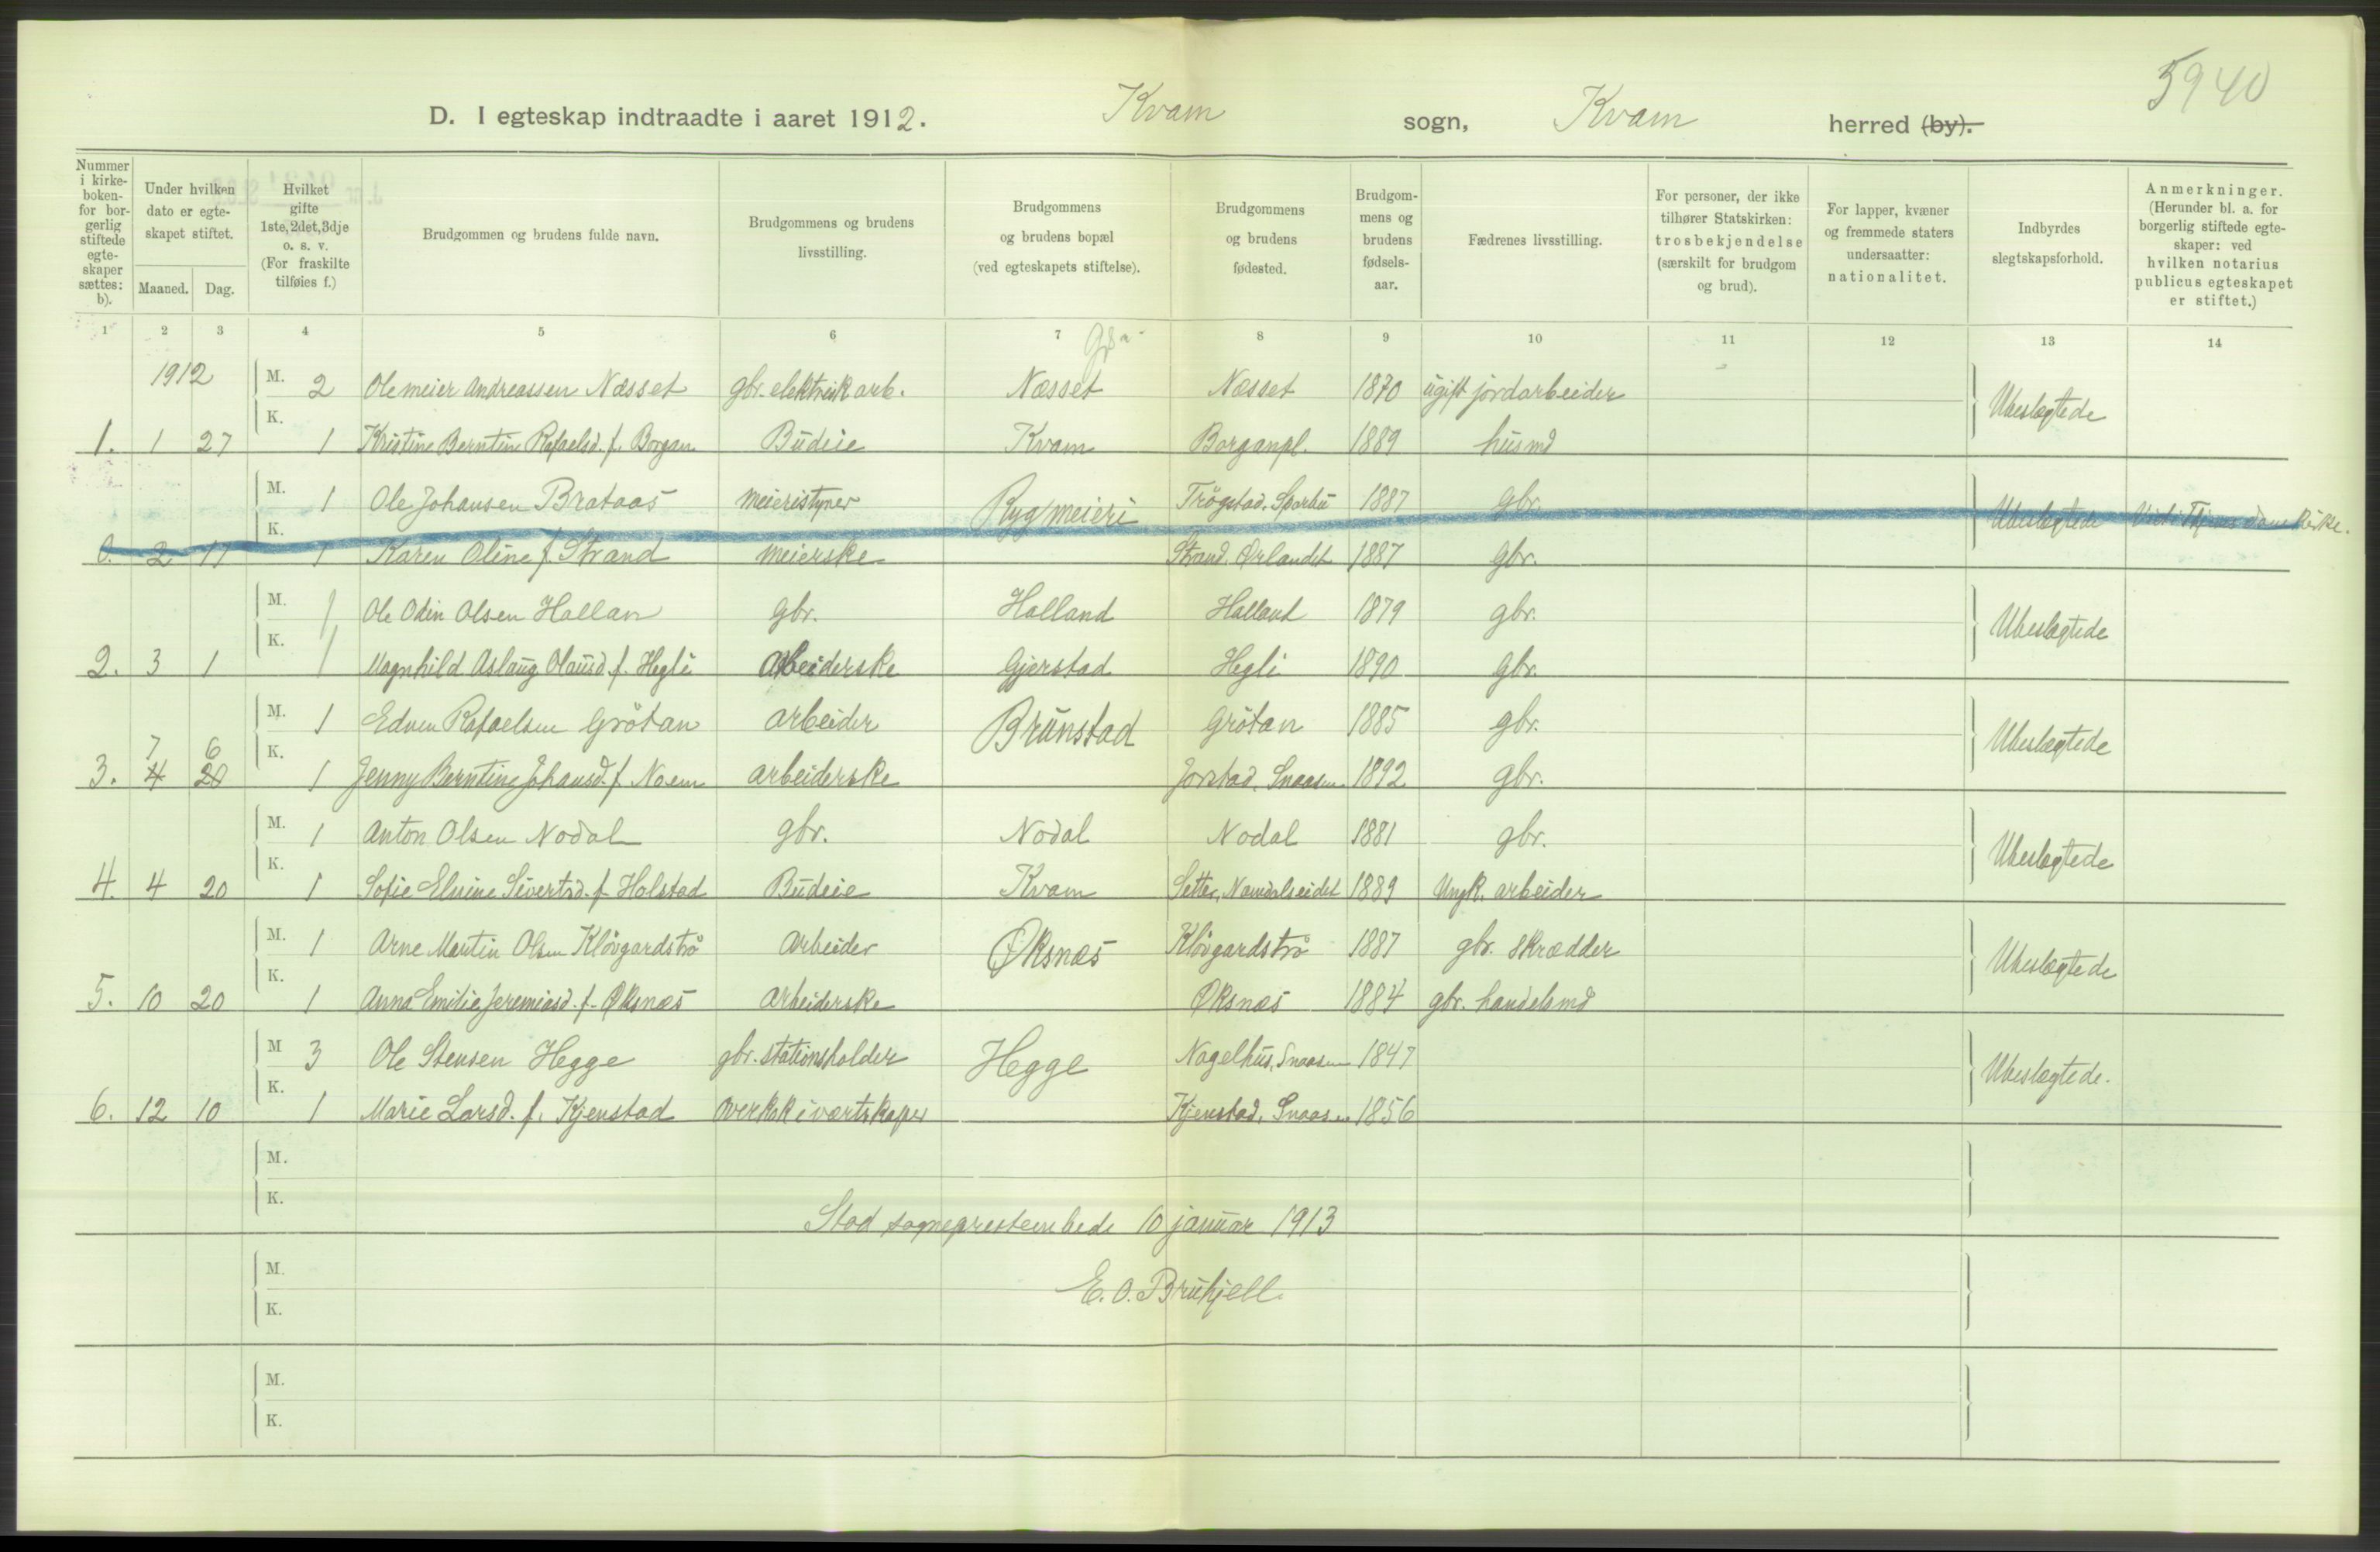 5940
D. I egteskap indtraadte i aaret 1912. Kvam sogn, Kvam herred (by).
Nummer i kirkeboken- for borgerlig stiftede egteskaper sættes: b).
Under hvilken dato er egteskapet stiftet.
Maaned. Dag.
Hvilket gifte 1ste, 2det, 3dje o. s. v. (For fraskilte tilføies f.)
Brudgommen og brudens fulde navn.
Brudgommens og brudens livsstilling.
Brudgommens og brudens bopæl (ved egteskapets stiftelse).
Brudgommens og brudens fødested.
Brudgommens og brudens fødselsaar.
Fædrenes livsstilling.
For personer, der ikke tilhører Statskirken: trosbekjendelse (særskilt for brudgom og brud).
For lapper, kvæner og fremmede staters undersaatter: nationalitet.
Indbyrdes slegtskapsforhold.
Anmerkninger. (Herunder bl. a. for borgerlig stiftede egteskaper: ved hvilken notarius publicus egteskapet er stiftet.)
1 2 3 4 5 6 7 8 9 10 11 12 13 14
1912 M. 2 Ole meier Andreassen Næsset gbr. elektrisk arb. Næsset Næsset 1870 ugift jordarbeider Ubeslegtede
1. 1 27 K. 1 Kristine Berntine Rafaelsd. f. Borgan Budeie Kvam Borganpl. 1889 husmd
M. 1 Ole Johansen Brataas meieristyrer Ryg meieri Trøgstad, Sparbu 1887 gbr. Ubeslegtede
0. 2 17 K. 1 Karen Oline f. Strand meierske Strand, Ørlandet 1887 gbr.
M. 1 Ole Odin Olsen Hallan gbr. Halland Halland 1879 gbr. Ubeslegtede
2. 3 1 K. 1 Magnhild Aslaug Olausd. f. Hegli Arbeiderske Gjørstad Hegli 1890 gbr.
M. 1 Edven Rafaelsen Grøtan arbeider Brunstad Grøtan 1885 gbr. Ubeslegtede
7 6
3. 4 20 K. 1 Jenny Berntine Johansd. f. Noem arbeiderske Jorstad, Snaasen 1892 gbr.
M. 1 Anton Olsen Nodal gbr. Nodal Nodal 1881 gbr. Ubeslegtede
4. 4 20 K. 1 Sofie Elvine Sivertsd. f. Holstad Budeie Kvam Setter, Namdalseidet 1889 Ungk. arbeider
M. 1 Arne Martin Olsen Kløvgardstrø Arbeider Øksnæs Kløvgardstrø 1887 gbr. skrædder Ubeslegtede
5. 10 20 K. 1 Anna Emilie Jeremiasd. f. Øksnæs Arbeiderske Øksnæs 1884 gbr. handelsmd
M 3 Ole Stensen Hegge gbr. stationsholder Hegge Nagelhus, Snaasen 1847 Ubeslegtede.
6. 12 10 K. 1 Marie Larsd. f. Kjenstad Kjenstad, Snaasen 1856
M.
K.
Stod sogneprestembede 10 januar 1913
M.
E. O. Brukjell
K.
M.
K.